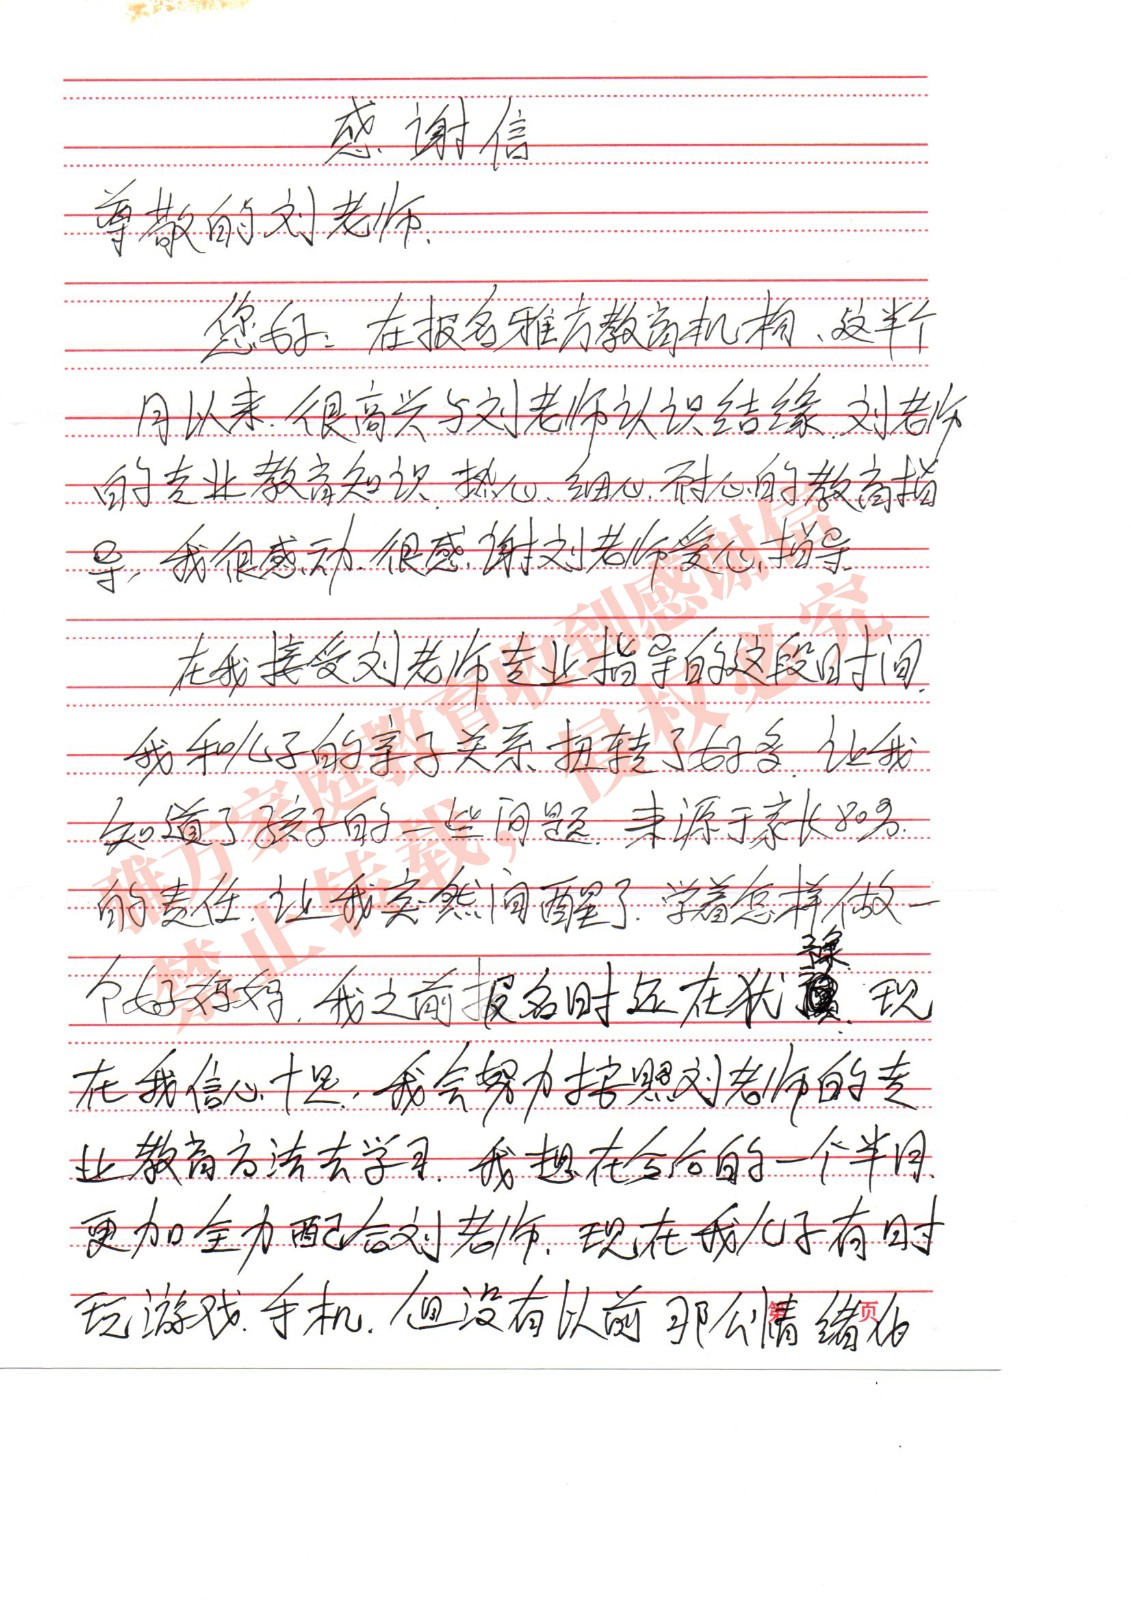 感谢信
尊敬的刘老师.
您好: 在报名雅方教育机构、这半个
月以来.很高兴与刘老师认识结缘.刘老师
的专业教育知识.热心.细心.耐心的教育指
导,我很感动.很感谢刘老师爱心指导.
在我接受刘老师专业指导的这段时间.
我和儿子的亲子关系扭转了好多.让我
知道了孩子的一些问题.来源于家长80%.
的责任.让我突然间醒了.学着怎样做一
个好妈妈.我之前报名时还在犹豫.现
在我信心十足,我会努力按照刘老师的专
业教育方法去学习.我想在今后的一个半月.
更加全力配合刘老师.现在我儿子有时
玩游戏.手机.但没有以前那么情绪化
第 页
雅方家庭教育收到感谢信
禁止转载，侵权必究